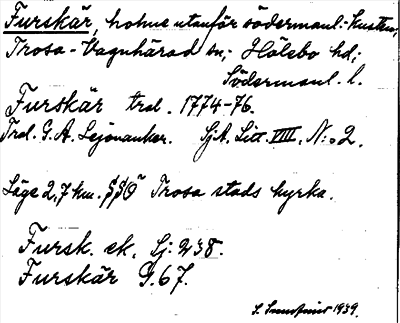 Furskär, holme utanför södermanl.-kusten,
Trosa-Vagnhärad sn, Hölebo hd;
Södermanl. l.
Furskär trol. 1774-76.
Trol. G. A. Lejonanker. SjA. Litt. VIII. N:o 2.
Läge 2,7 km. SSO Trosa stads kyrka.
Fursk. ek. Sj: 238.
Furskär G. 67.
S. 1939.